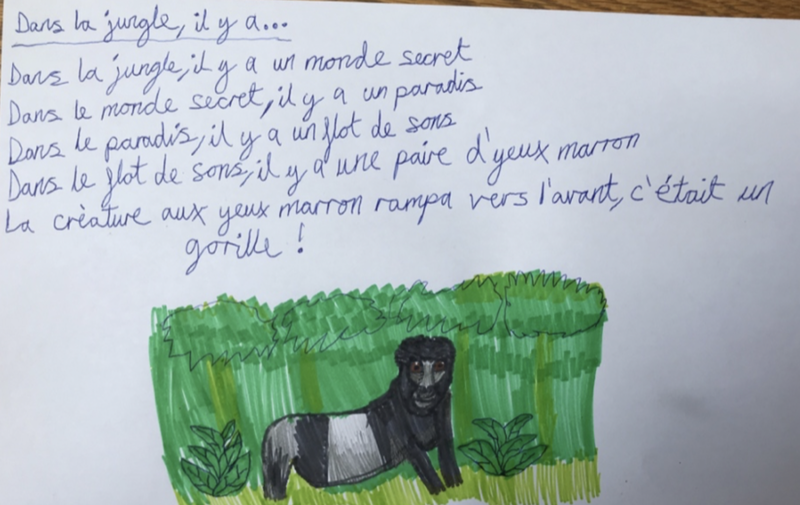 Dans la jungle, il y a...
Dans la jungle, il y a un monde secret
Dans le monde secret, il y a un paradis
Dans le paradis, il y a un flot de sons
Dans le flot de sons, il y a une paire d'yeux marron
La crèature aux yeux marron rampa vers l'avant, c'était un
gorille !